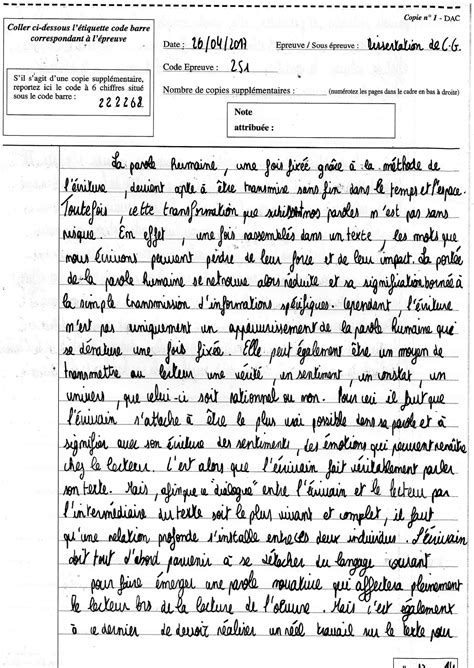 Copie n° 1 - DAC
Coller ci-dessous l'étiquette code barre
correspondant à l'épreuve
Date : 26/04/2017 Epreuve / Sous épreuve : Dissertation de C.G.
Code Epreuve : 251
S'il s'agit d'une copie supplémentaire,
reportez ici le code à 6 chiffres situé
sous le code barre : 222268
Nombre de copies supplémentaires : (numérotez les pages dans le cadre en bas à droite)
Note
attribuée :
La parole humaine, une fois fixée grâce à la méthode de
l'écriture, devient apte à être transmise sans fin dans le temps et l'espace.
Toutefois, cette transformation que subissent nos paroles n'est pas sans
risque. En effet, une fois rassemblés dans un texte, les mots que
nous écrivons peuvent perdre de leur force et de leur impact. La portée
de la parole humaine se retrouve alors réduite et sa signification bornée à
la simple transmission d'informations spécifiques. Cependant, l'écriture
n'est pas uniquement un appauvrissement de la parole humaine qui
se dénature une fois fixée. Elle peut également être un moyen de
transmettre au lecteur une vérité, un sentiment, un constat, un
univers, que celui-ci soit rationnel ou non. Pour ceci il faut que
l'écrivain s'attache à être le plus vrai possible dans sa parole et à
signifier avec son écriture des sentiments, des émotions qui peuvent naître
chez le lecteur. C'est alors que l'écrivain fait véritablement parler
son texte. Mais, afin que ce "dialogue" entre l'écrivain et le lecteur par
l'intermédiaire du texte soit le plus vivant et complet, il faut
qu'une relation profonde s'installe entre ces deux individus. L'écrivain
doit tout d'abord parvenir à se détacher du langage courant
pour faire émerger une parole novatrice qui affectera pleinement
le lecteur lors de la lecture de l'oeuvre. Mais c'est également
à ce dernier de devoir réaliser un réel travail sur le texte pour